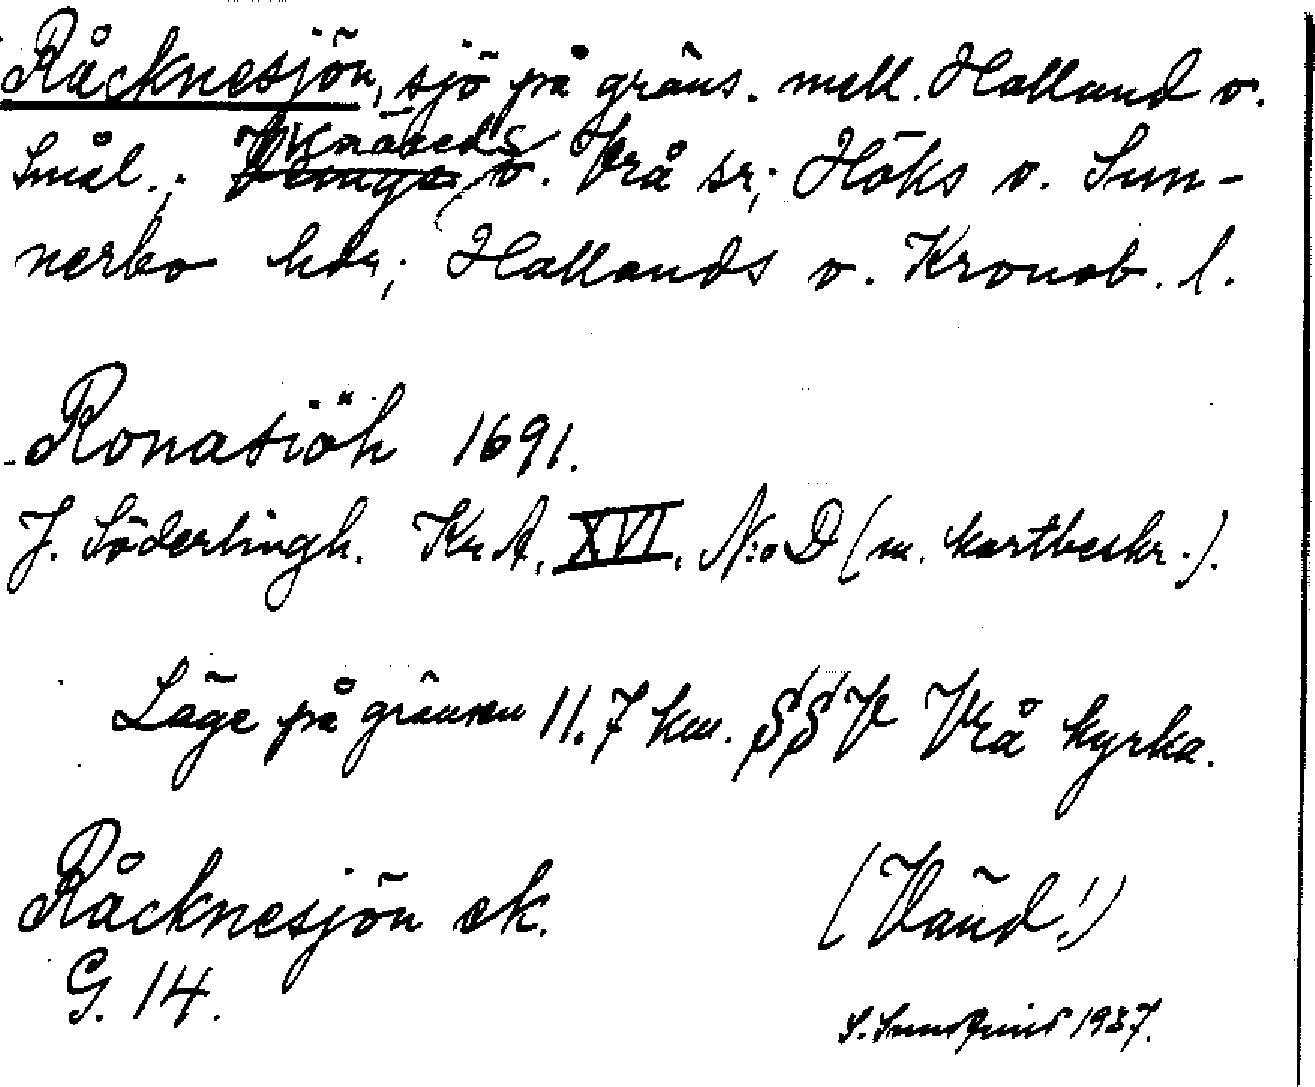 Råcknesjön, sjö på gräns. mell. Halland o.
Knäreds
Smål.; Veinge o. Vrå sr; Höks o. Sun-
nerbo hdr; Hallands o. Kronob. l.
Ronasiöh 1691.
J. Söderlingh. Kr. A. XVI. N:o D (m. kartbeskr.).
Läge på gränsen 11.7 km. SSV Vrå kyrka.
Råcknesjön ek. (Vänd!)
G. 14.
1937.